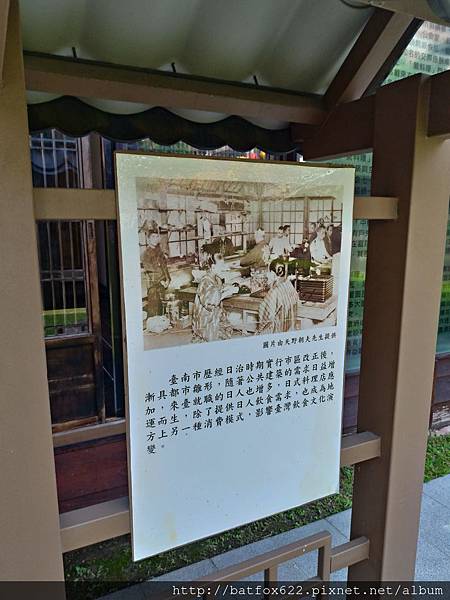 圖片由天野朝夫先生提供
臺南市歷經日治時期實行市區改正後，
漸具都市雛形，隨著公共建築的需求日益增
加，來臺就職的日人也增多，日式料理店應
運而生，除了提供日人飲食需求，也成為地
方上另一種消費模式，影響臺灣飲食文化演
變。
http://batfox622.pixnet.net/album